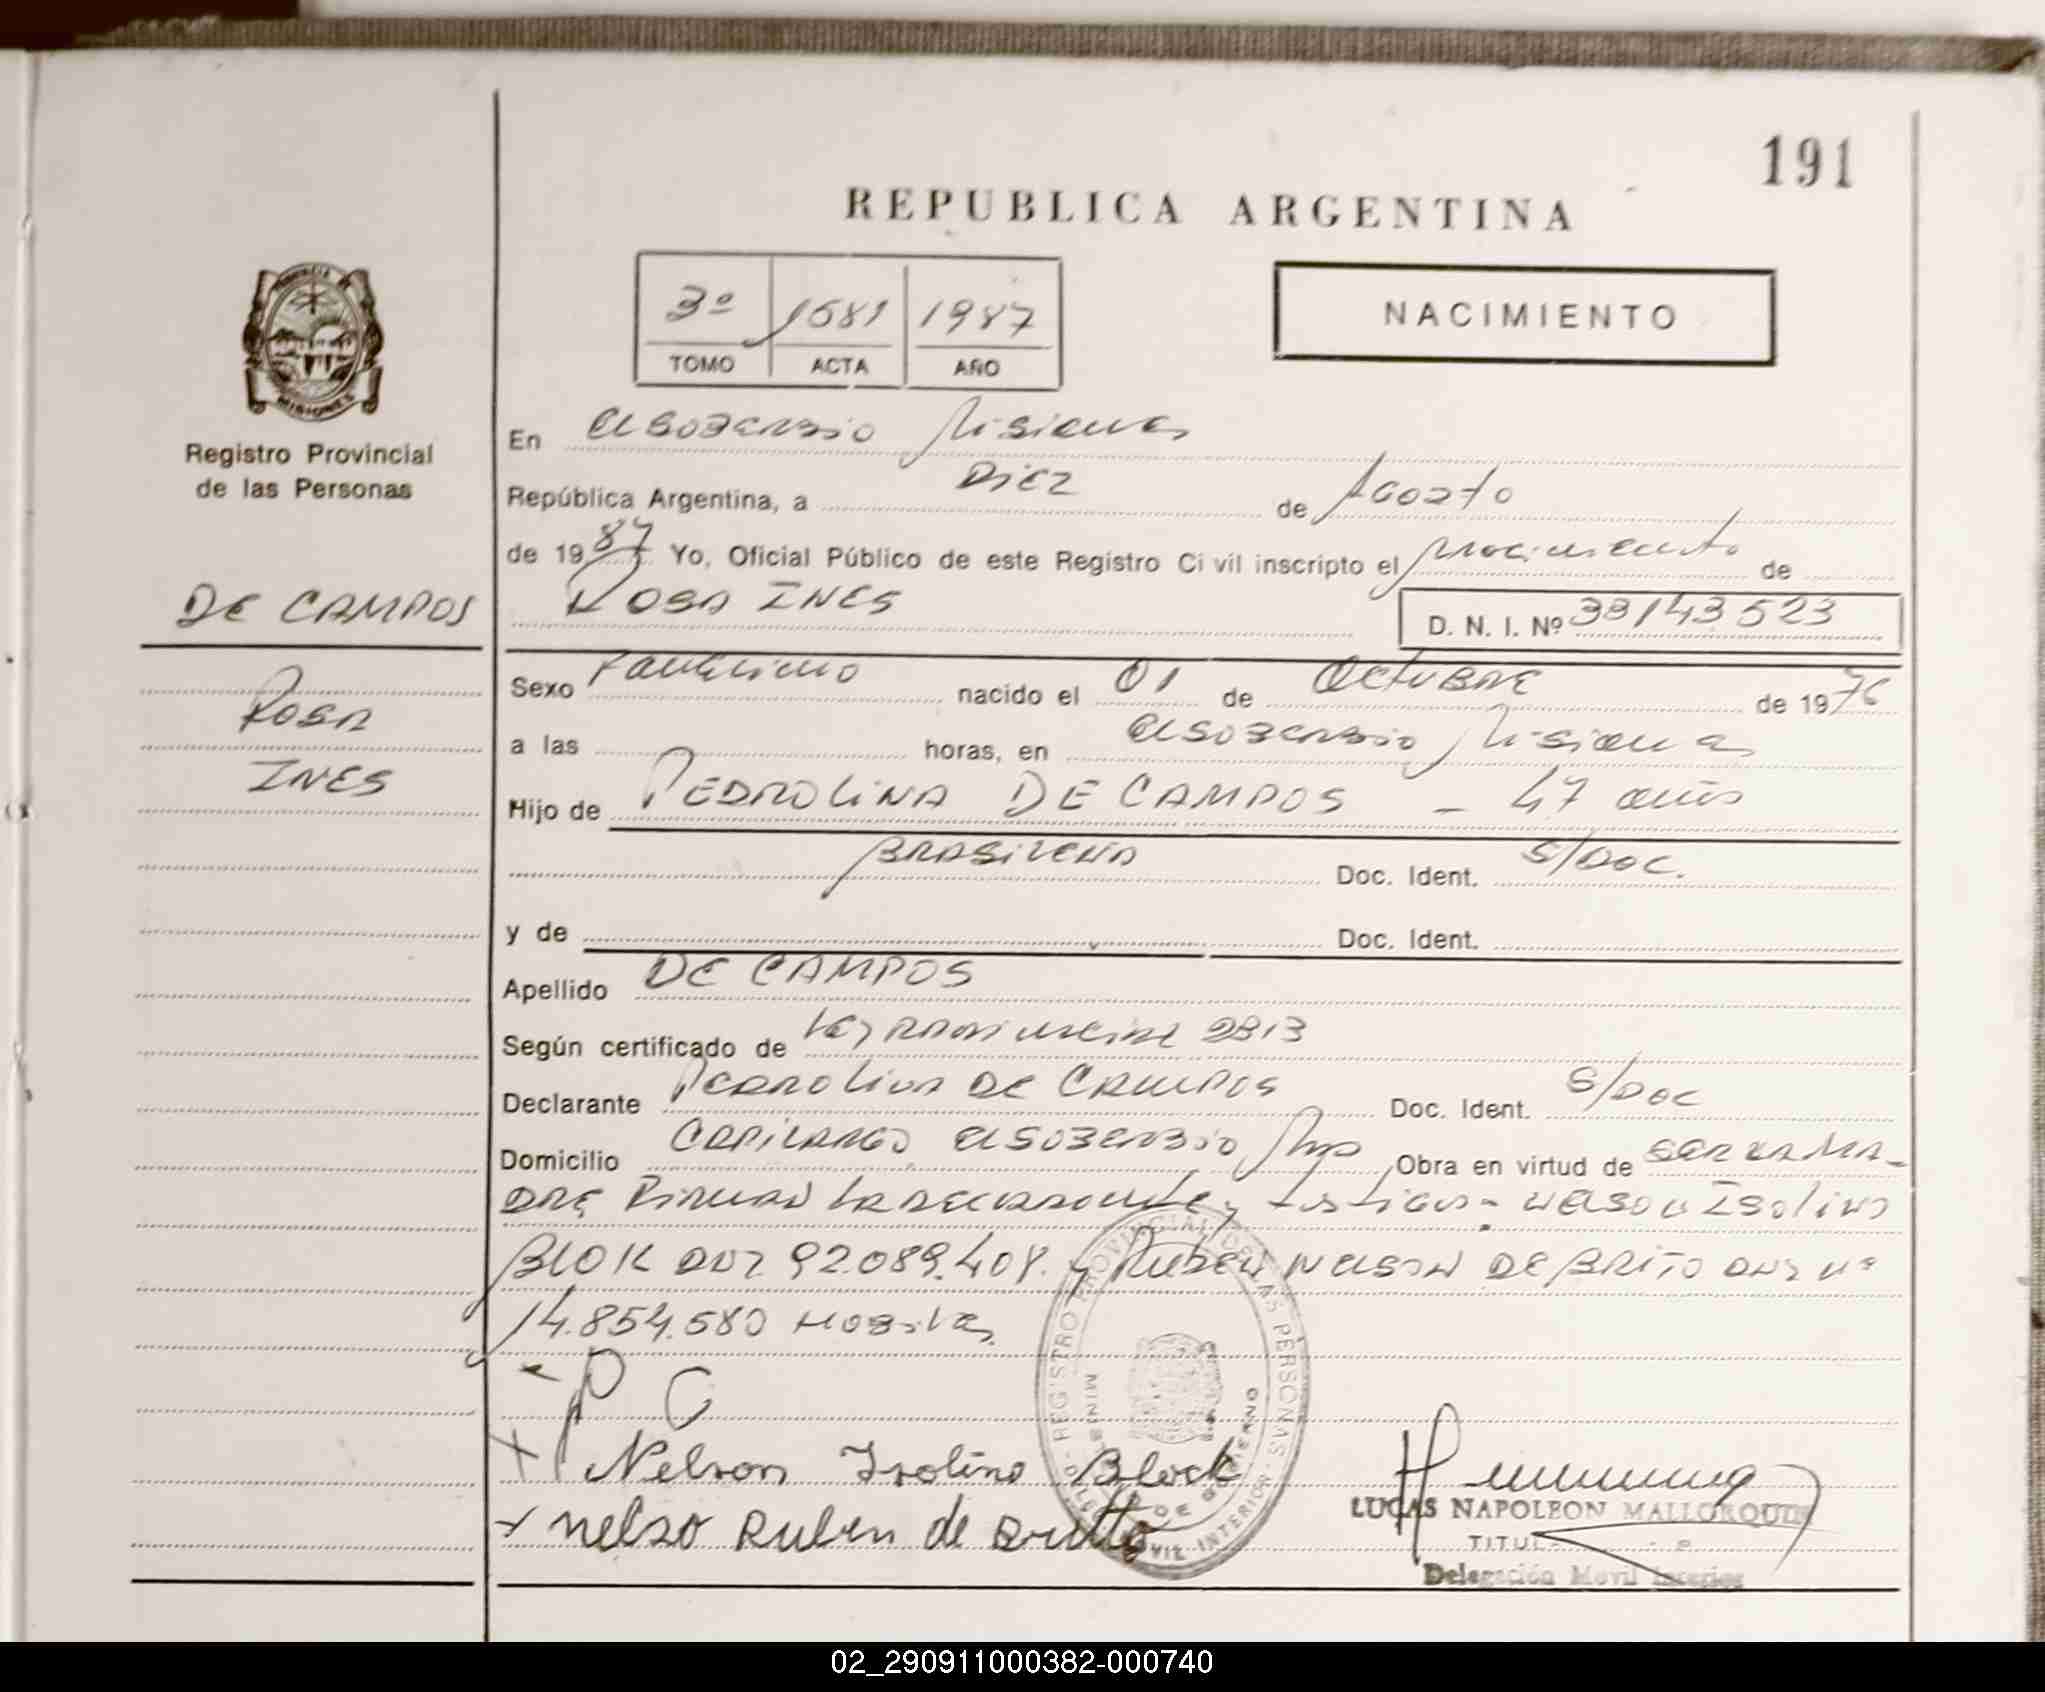 191
REPUBLICA ARGENTINA
3º 1681 1987
TOMO ACTA AÑO
NACIMIENTO
PROVINCIA
MISIONES
Registro Provincial
de las Personas
DE CAMPOS
ROSA
INES
En elsoberbio Misiones
República Argentina, a Diez de Agosto
de 1987 Yo, Oficial Público de este Registro Civil inscripto el nacimiento de
ROSA INES D. N. I. Nº 33143523
Sexo Femenino nacido el 01 de OCTUBRE de 1976
a las horas, en elsoberbio Misiones
Hijo de PEDROLINA DE CAMPOS - 47 años
BRASILEÑA Doc. Ident. S/DOC.
y de Doc. Ident.
Apellido DE CAMPOS
Según certificado de Ley Provincial 2813
Declarante PEDROLINA DE CAMPOS Doc. Ident. S/DOC
Domicilio elsoberbio Mnes Obra en virtud de SER LA MA-
DRE Firman la declarante y testigos - NELSON ISOLINO
BLOK DNI 92.089.408. y RUBEN NELSON DE BRITO DNI Nº
14.854.580
P C
Nelson Isolino Block
nelso Ruben de Britto
REGISTRO PROVINCIAL DE LAS PERSONAS
MINIST DE GOBIERNO
CIVIL INTERIOR
LUCAS NAPOLEON MALLORQUIN
TITUL
Delegación Movil Interior
02_290911000382-000740